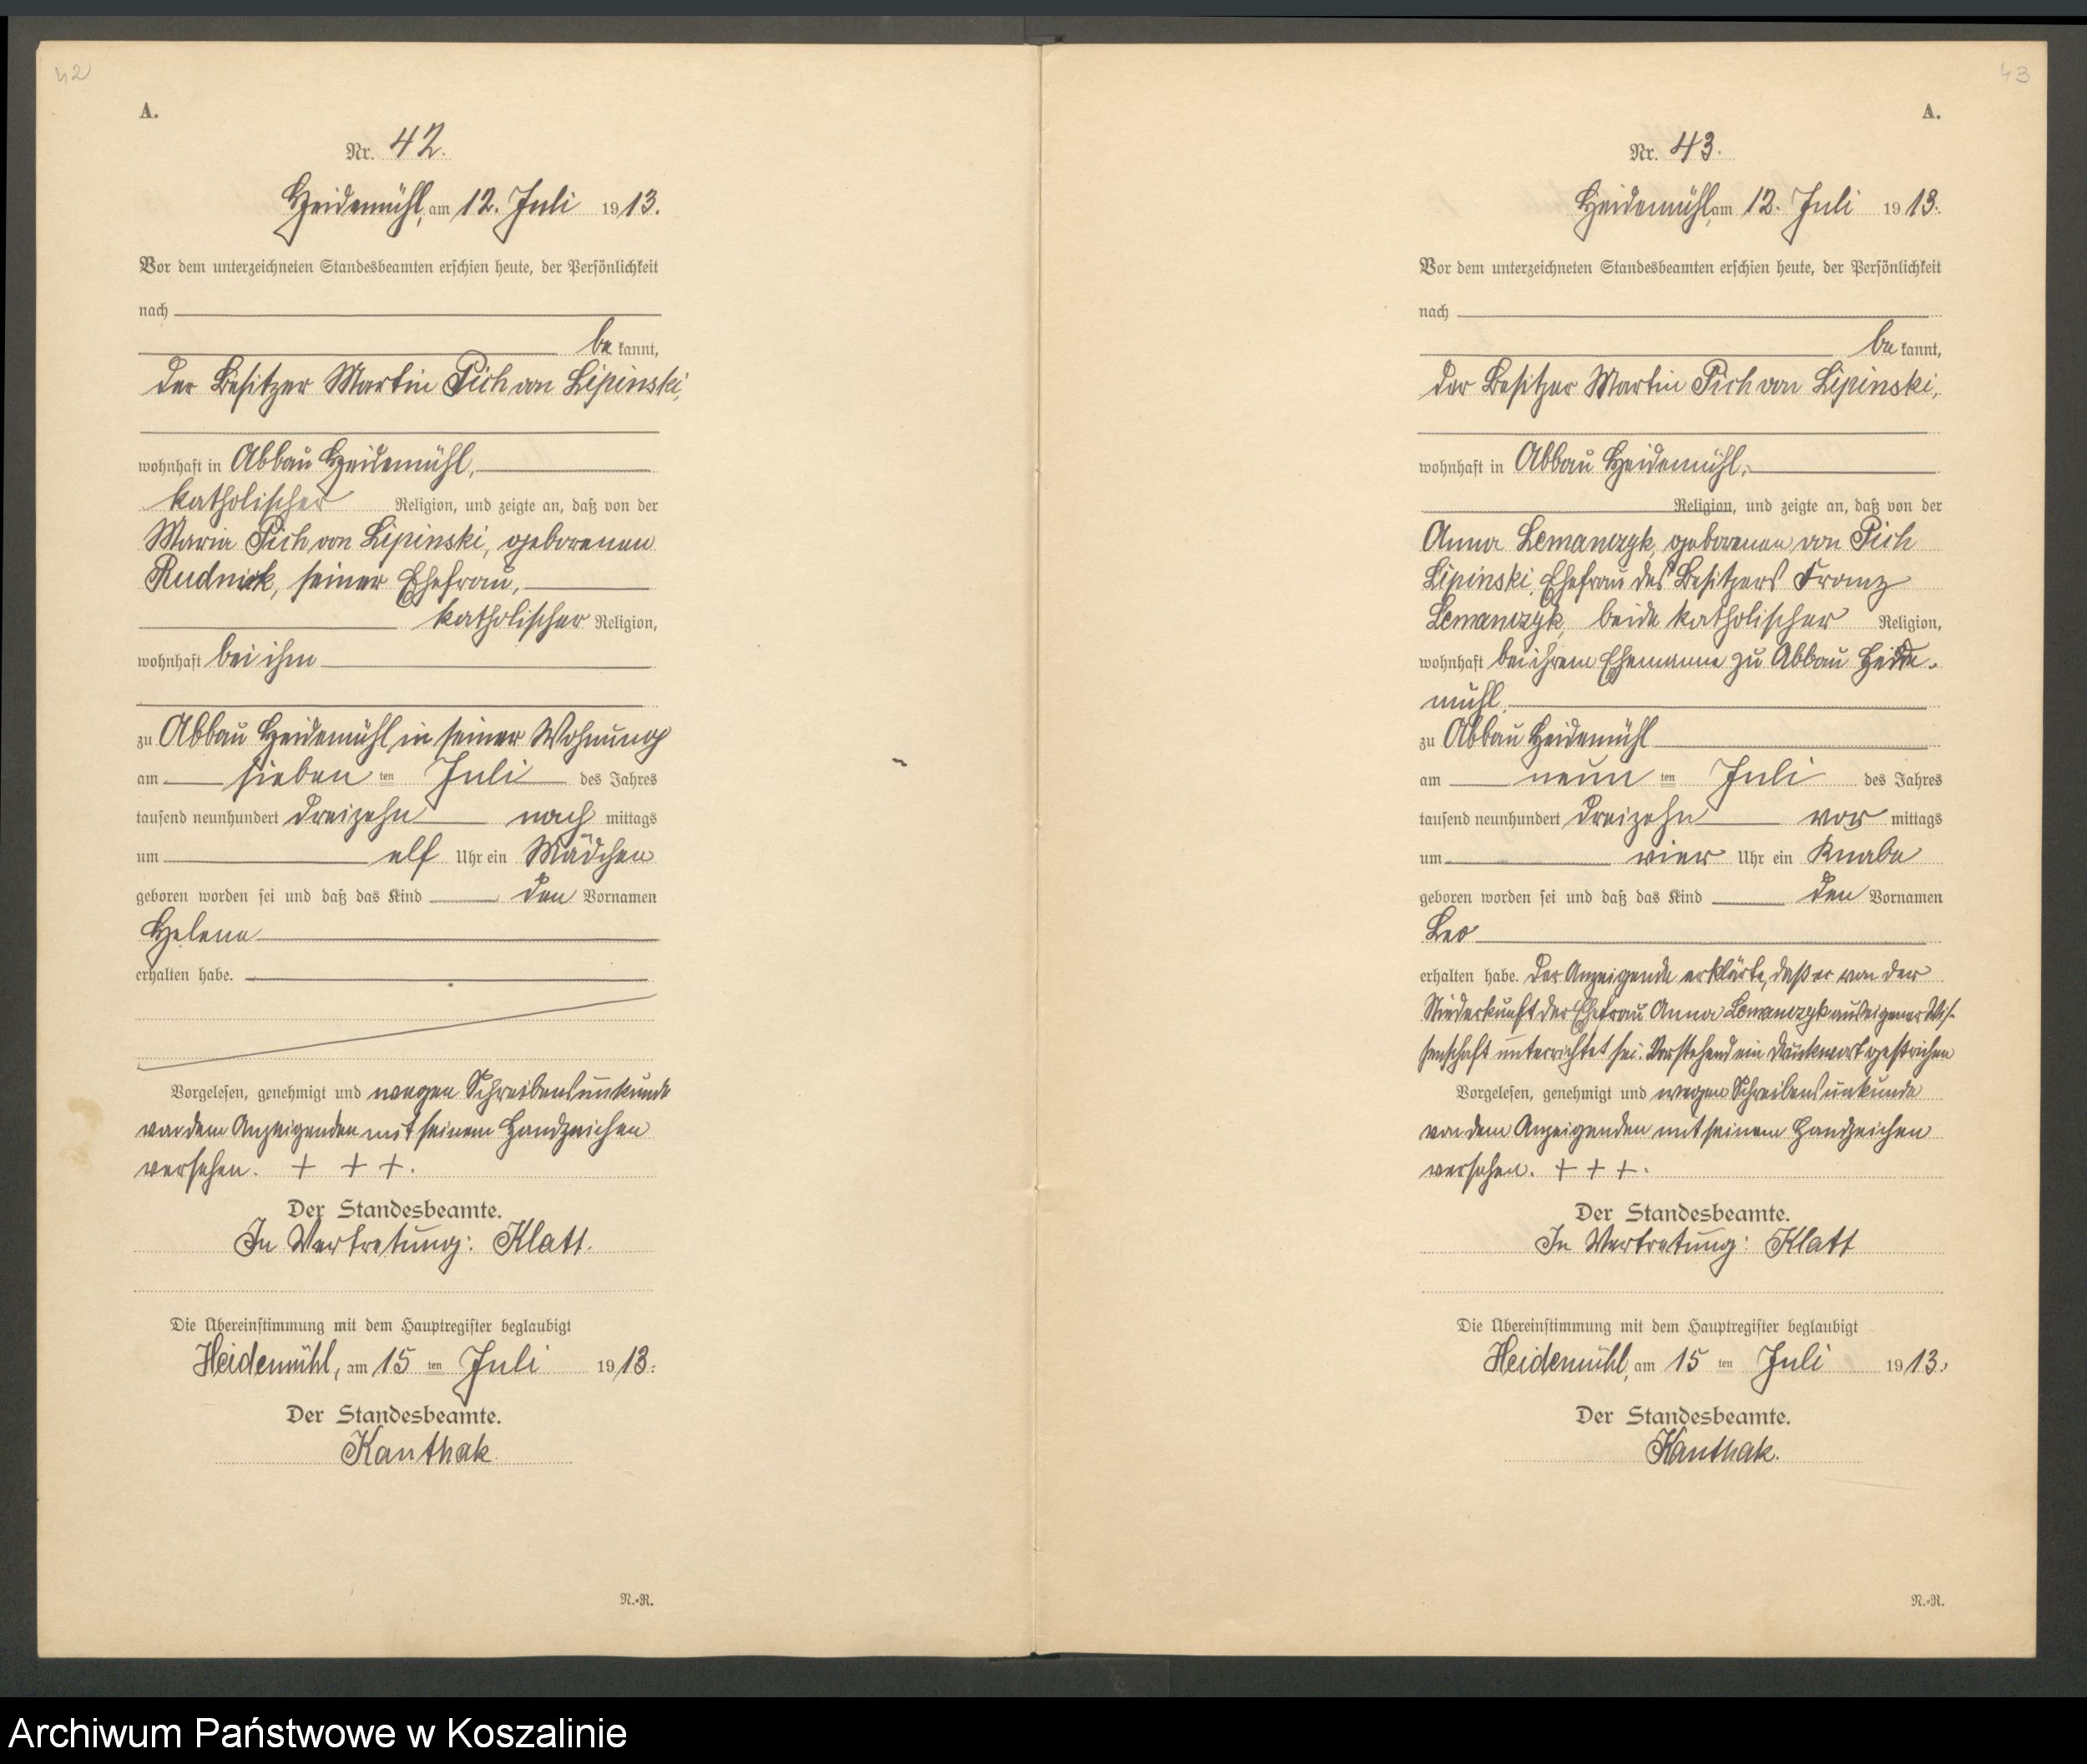 42
A.
Nr. 42.
Heidemühl, am 12. Juli 1913.
Vor dem unterzeichneten Standesbeamten erschien heute, der Persönlichkeit
nach
be kannt,
der Besitzer Martin Pich von Lipinski,
wohnhaft in Abbau Heidemühl,
katholischer Religion, und zeigte an, daß von der
Maria Pich von Lipinski, geborenen
Rudnick, seiner Ehefrau,
katholischer Religion,
wohnhaft bei ihm
zu Abbau Heidemühl, in seiner Wohnung
am sieben ten Juli des Jahres
tausend neunhundert dreizehn nach mittags
um elf Uhr ein Mädchen
geboren worden sei und daß das Kind den Vornamen
Helene
erhalten habe.
Vorgelesen, genehmigt und wegen Schreibensunkunde
von dem Anzeigenden mit seinem Handzeichen
versehen. + + +.
Der Standesbeamte.
In Vertretung: Klatt.
Die Übereinstimmung mit dem Hauptregister beglaubigt
Heidemühl, am 15 ten Juli 1913.
Der Standesbeamte.
Kanthak.
N.-R.
43
A.
Nr. 43.
Heidemühl, am 12. Juli 1913.
Vor dem unterzeichneten Standesbeamten erschien heute, der Persönlichkeit
nach
be kannt,
der Besitzer Martin Pich von Lipinski,
wohnhaft in Abbau Heidemühl,
Religion, und zeigte an, daß von der
Anna Lemanczyk, geborenen von Pich
Lipinski, Ehefrau des Besitzers Franz
Lemanczyk, beide katholischer Religion,
wohnhaft bei ihrem Ehemanne zu Abbau Heide-
mühl,
zu Abbau Heidemühl
am neun ten Juli des Jahres
tausend neunhundert dreizehn vor mittags
um vier Uhr ein Knabe
geboren worden sei und daß das Kind den Vornamen
Leo
erhalten habe. Der Anzeigende erklärte, daß er von der
Niederkunft der Ehefrau Anna Lemanczyk aus eigener Wis-
senschaft unterrichtet sei. Vorstehend ein Druckwort gestrichen
Vorgelesen, genehmigt und wegen Schreibensunkunde
von dem Anzeigenden mit seinem Handzeichen
versehen. + + +.
Der Standesbeamte.
In Vertretung: Klatt
Die Übereinstimmung mit dem Hauptregister beglaubigt
Heidemühl, am 15 ten Juli 1913.
Der Standesbeamte.
Kanthak.
N.-R.
Archiwum Państwowe w Koszalinie